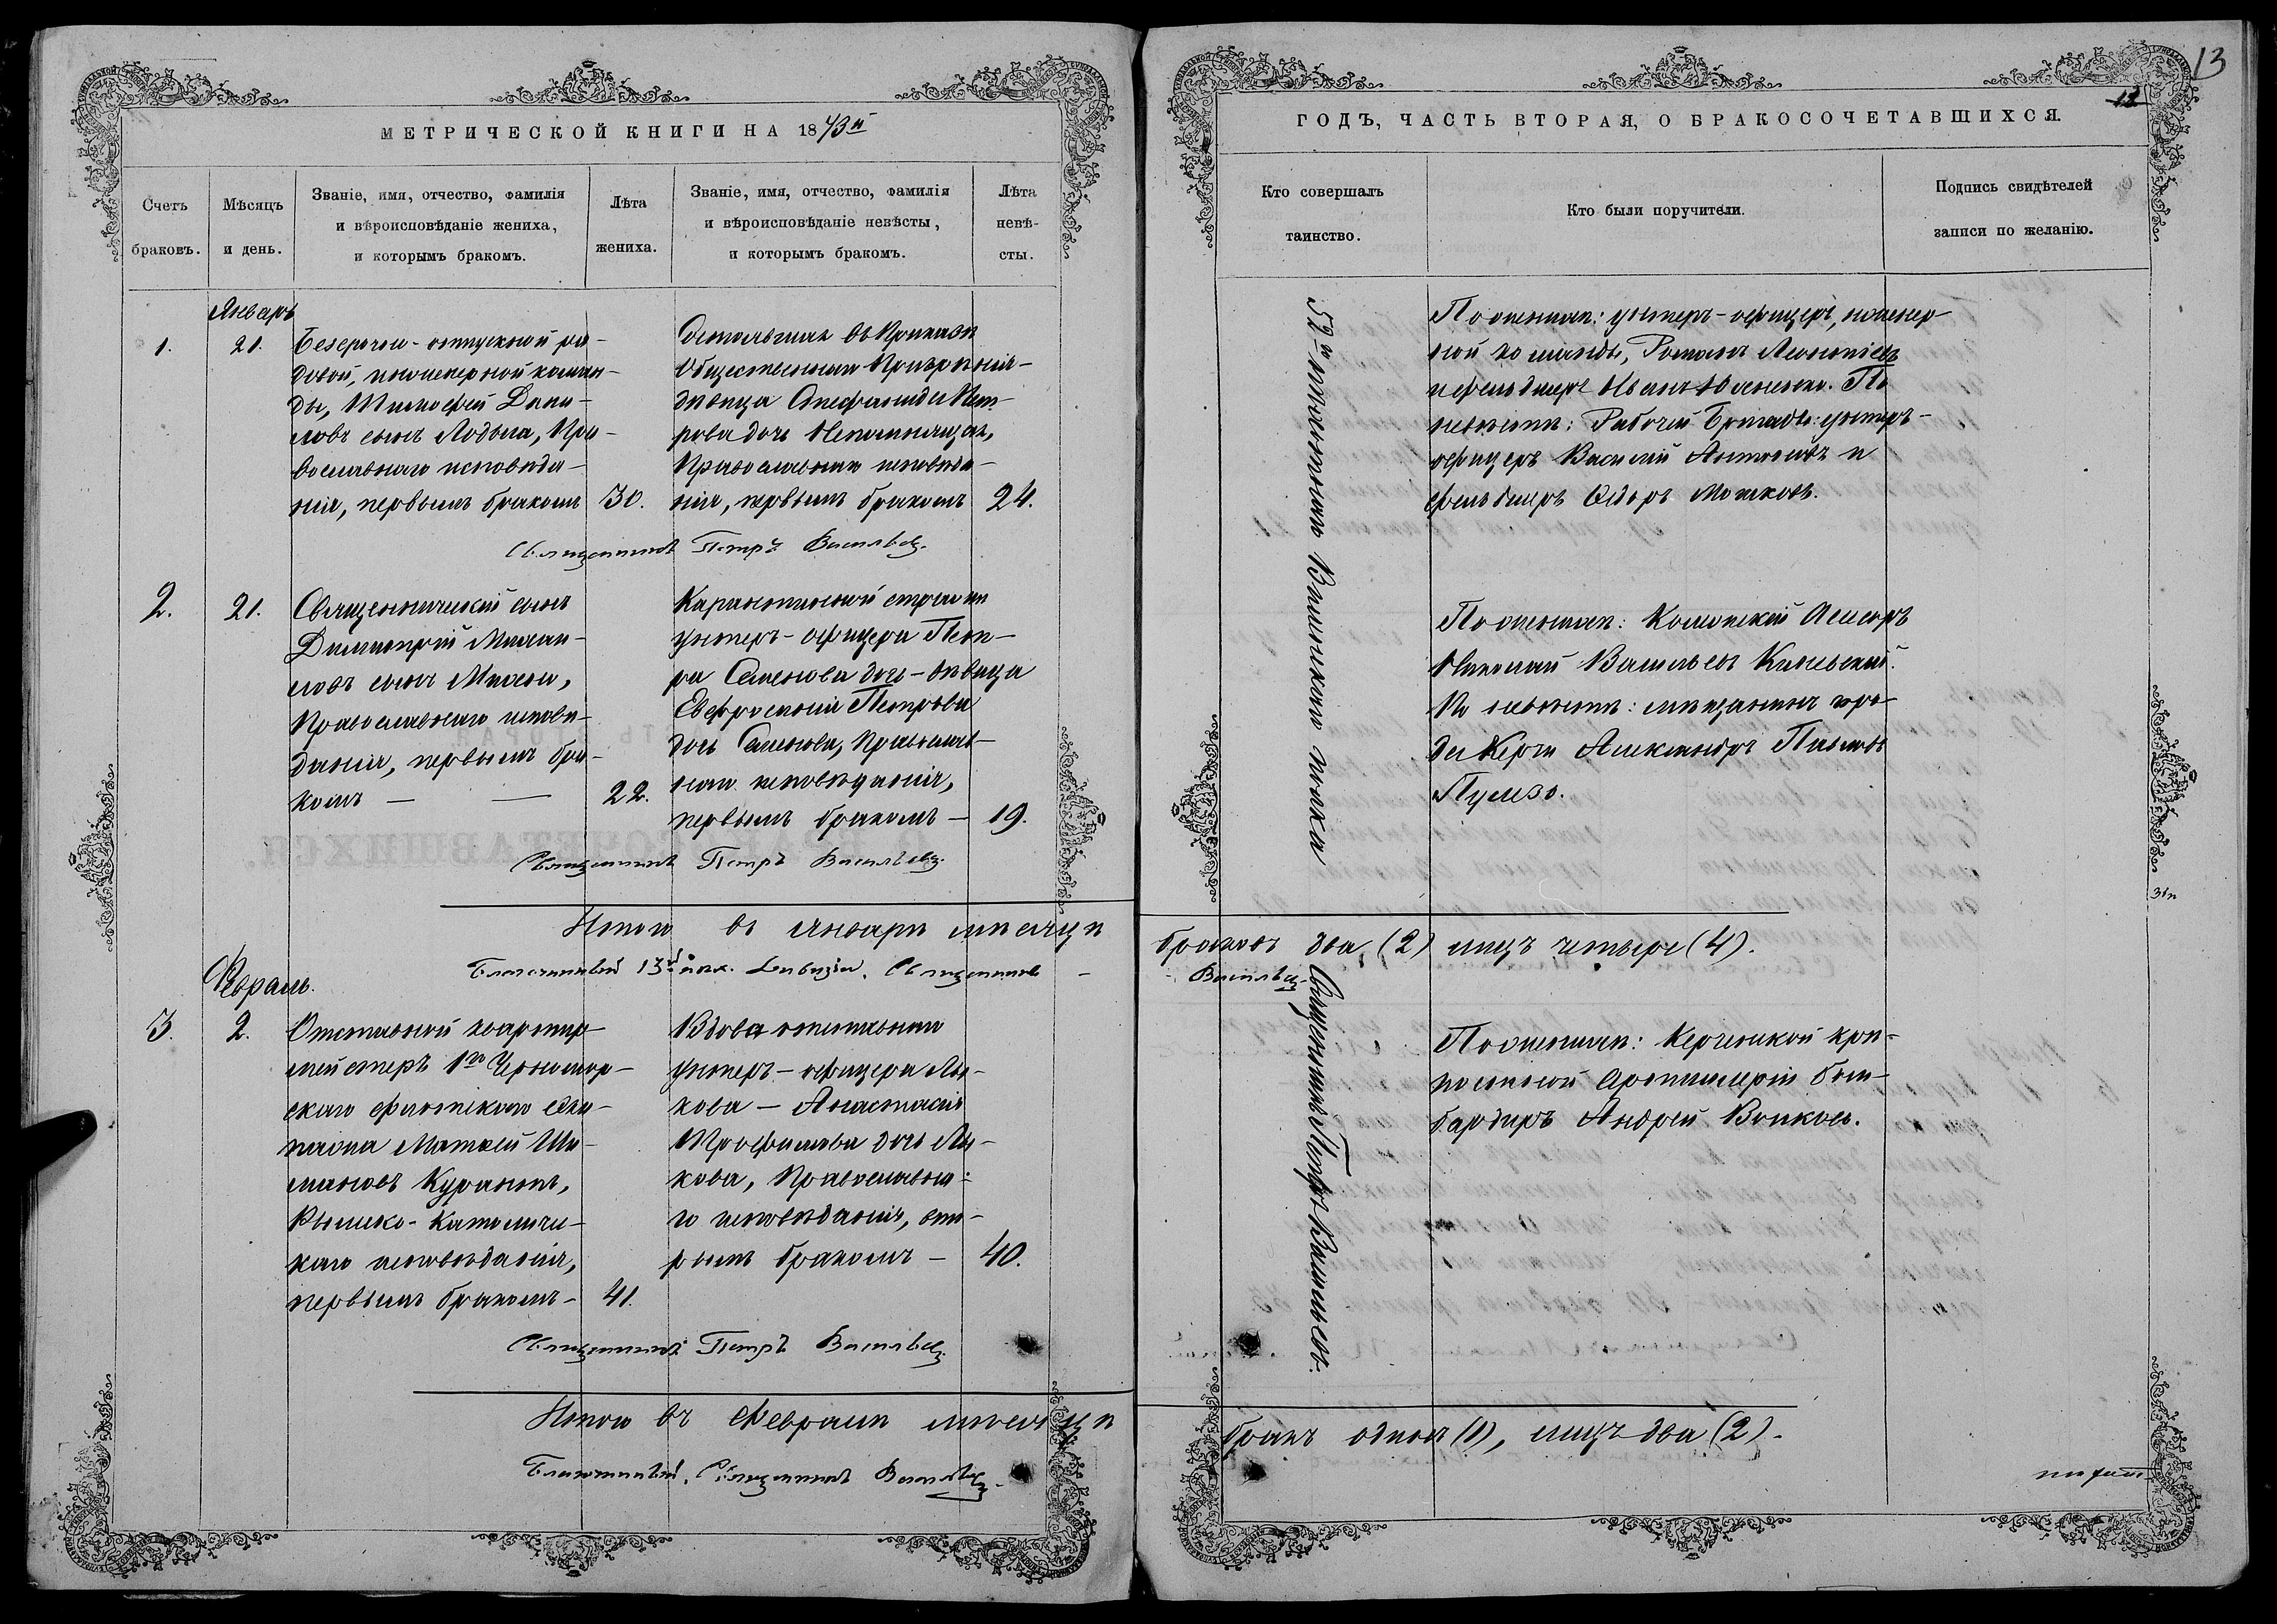 МЕТРИЧЕСКОЙ КНИГИ НА 1873й
Счетъ браковъ.
Мѣсяцъ и день.
Званіе, имя, отчество, фамилія и вѣроисповѣданіе жениха, и которымъ бракомъ.
Лѣта жениха.
Званіе, имя, отчество, фамилія и вѣроисповѣданіе невѣсты, и которымъ бракомъ.
Лѣта невѣ-сты.
Январь
1.
21.
Безсрочно-отпускной ря-
довой, инженерной коман-
ды, Тимофей Дани-
ловъ сынъ Лодыга, Пра-
вославнаго исповѣда-
нія, первымъ бракомъ
30.
Состоявшая въ Приказѣ
Общественнаго Призрѣнія-
дѣвица Стефанида Пет-
рова дочь Непомнящая,
Православнаго исповѣда-
нія, первымъ бракомъ
24.
Священникъ Петръ Васильевъ.
2.
21.
Священническій сынъ
Димитрій Михаи-
ловъ сынъ
Православнаго исповѣ-
данія, первымъ бра-
комъ — —
22.
Карантинной стражи
унтеръ-офицера Пет-
ра Семенова дочь - дѣвица
Евфросинія Петрова
дочь Семенова, Православ-
наго исповѣданія,
первымъ бракомъ —
19.
Священникъ Петръ Васильевъ.
Итого въ Январѣ мѣсяцѣ
Благочинный 13й пѣх. Дивизіи, Священникъ -
Февраль.
3.
2.
Отставной квартир-
мейстеръ 1го Черномор-
скаго флотскаго Эки-
пажа Матвей
Курантъ,
Римско-Католиче-
скаго исповѣданія,
первымъ бракомъ -
41.
Вдова отставнаго
унтеръ-офицера Лы-
кова — Анастасія
Трофимова дочь Лы-
кова, Православна-
го исповѣданія, вто-
рымъ бракомъ —
40.
Священникъ Петръ Васильевъ.
Итого въ Февралѣ мѣсяцѣ
Благочинный, Священникъ Васильевъ.
13
12
ГОДЪ, ЧАСТЬ ВТОРАЯ, О БРАКОСОЧЕТАВШИХСЯ.
Кто совершалъ таинство.
Кто были поручители.
Подпись свидѣтелей записи по желанію.
52го пѣхотнаго Виленскаго полка
Священникъ Петръ Васильевъ.
По женихѣ: унтеръ-офицеръ, инженер-
ной команды, Романъ Леонтіевъ
и фельдшеръ Иванъ По
невѣстѣ: Рабочей Бригады: унтеръ-
офицеръ Василій Антоновъ и
фельдшеръ Ѳедоръ Мошковъ.
По женихѣ: Коллежскій Асесоръ
Николай Васильевъ
По невѣстѣ: мѣщанинъ горо-
да Керчи Александръ Павловъ
браковъ два (2) лицъ четыре (4).
- Васильевъ
По женихѣ: Керченской крѣ-
постной Артиллеріи бом-
бардиръ Андрей Волковъ.
бракъ одинъ (1), лицъ два (2).